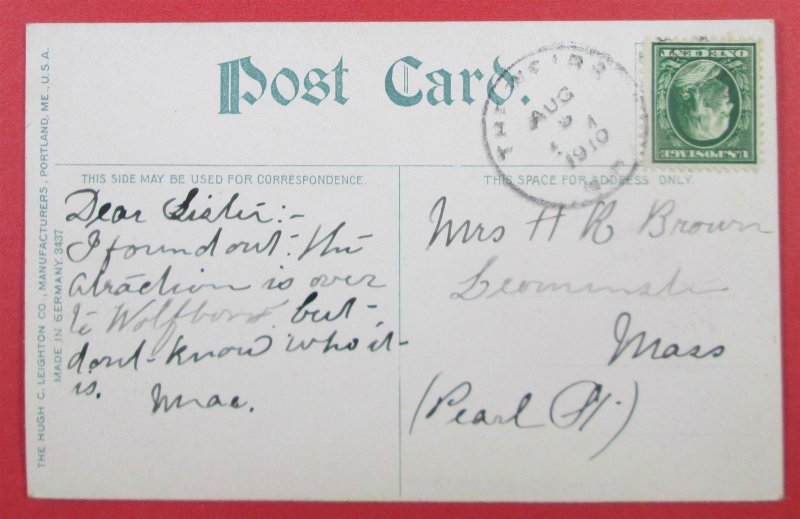 Post Card.
THE WEIRS
AUG
9 A
1910
N.H.
ONE CENT
U.S. POSTAGE
THIS SIDE MAY BE USED FOR CORRESPONDENCE.
THIS SPACE FOR ADDRESS ONLY.
THE HUGH C. LEIGHTON CO., MANUFACTURERS, PORTLAND, ME., U.S.A.
MADE IN GERMANY. 3437
Dear Sister:-
I found out. the
atraction is over
to Wolfboro. but
dont know who it
is. Mac.
Mrs H R Brown
Leominster
Mass
(Pearl St.)